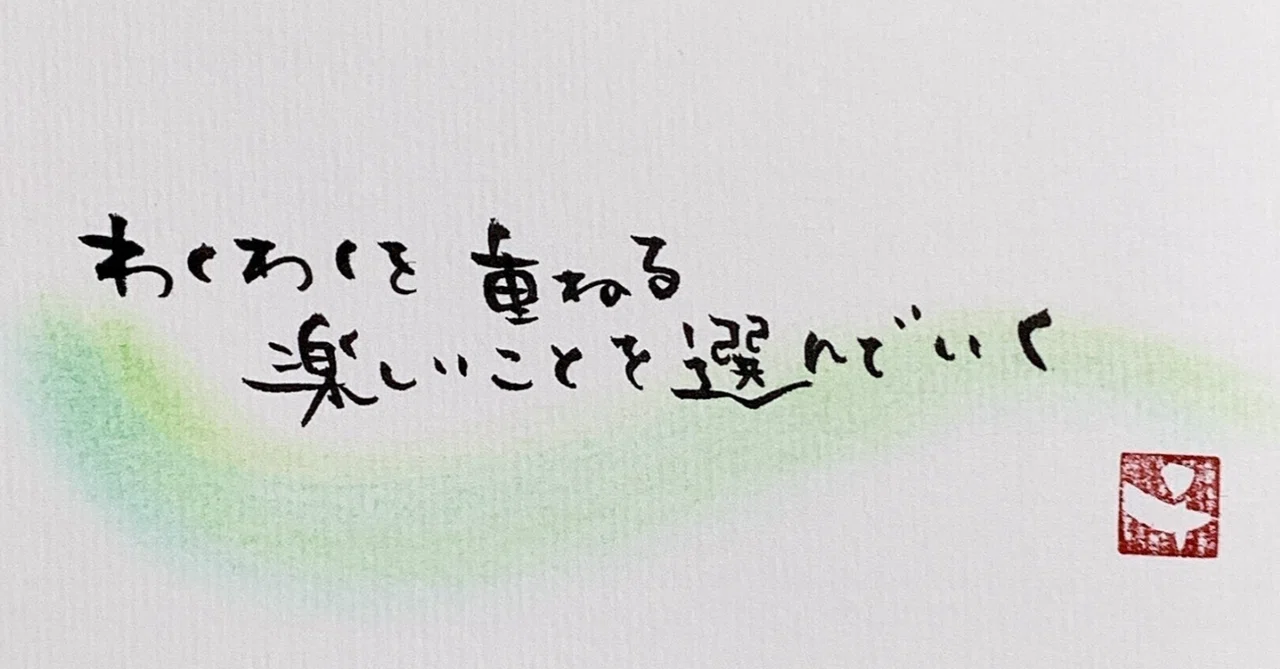 わくわくを重ねる
楽しいことを選んでいく